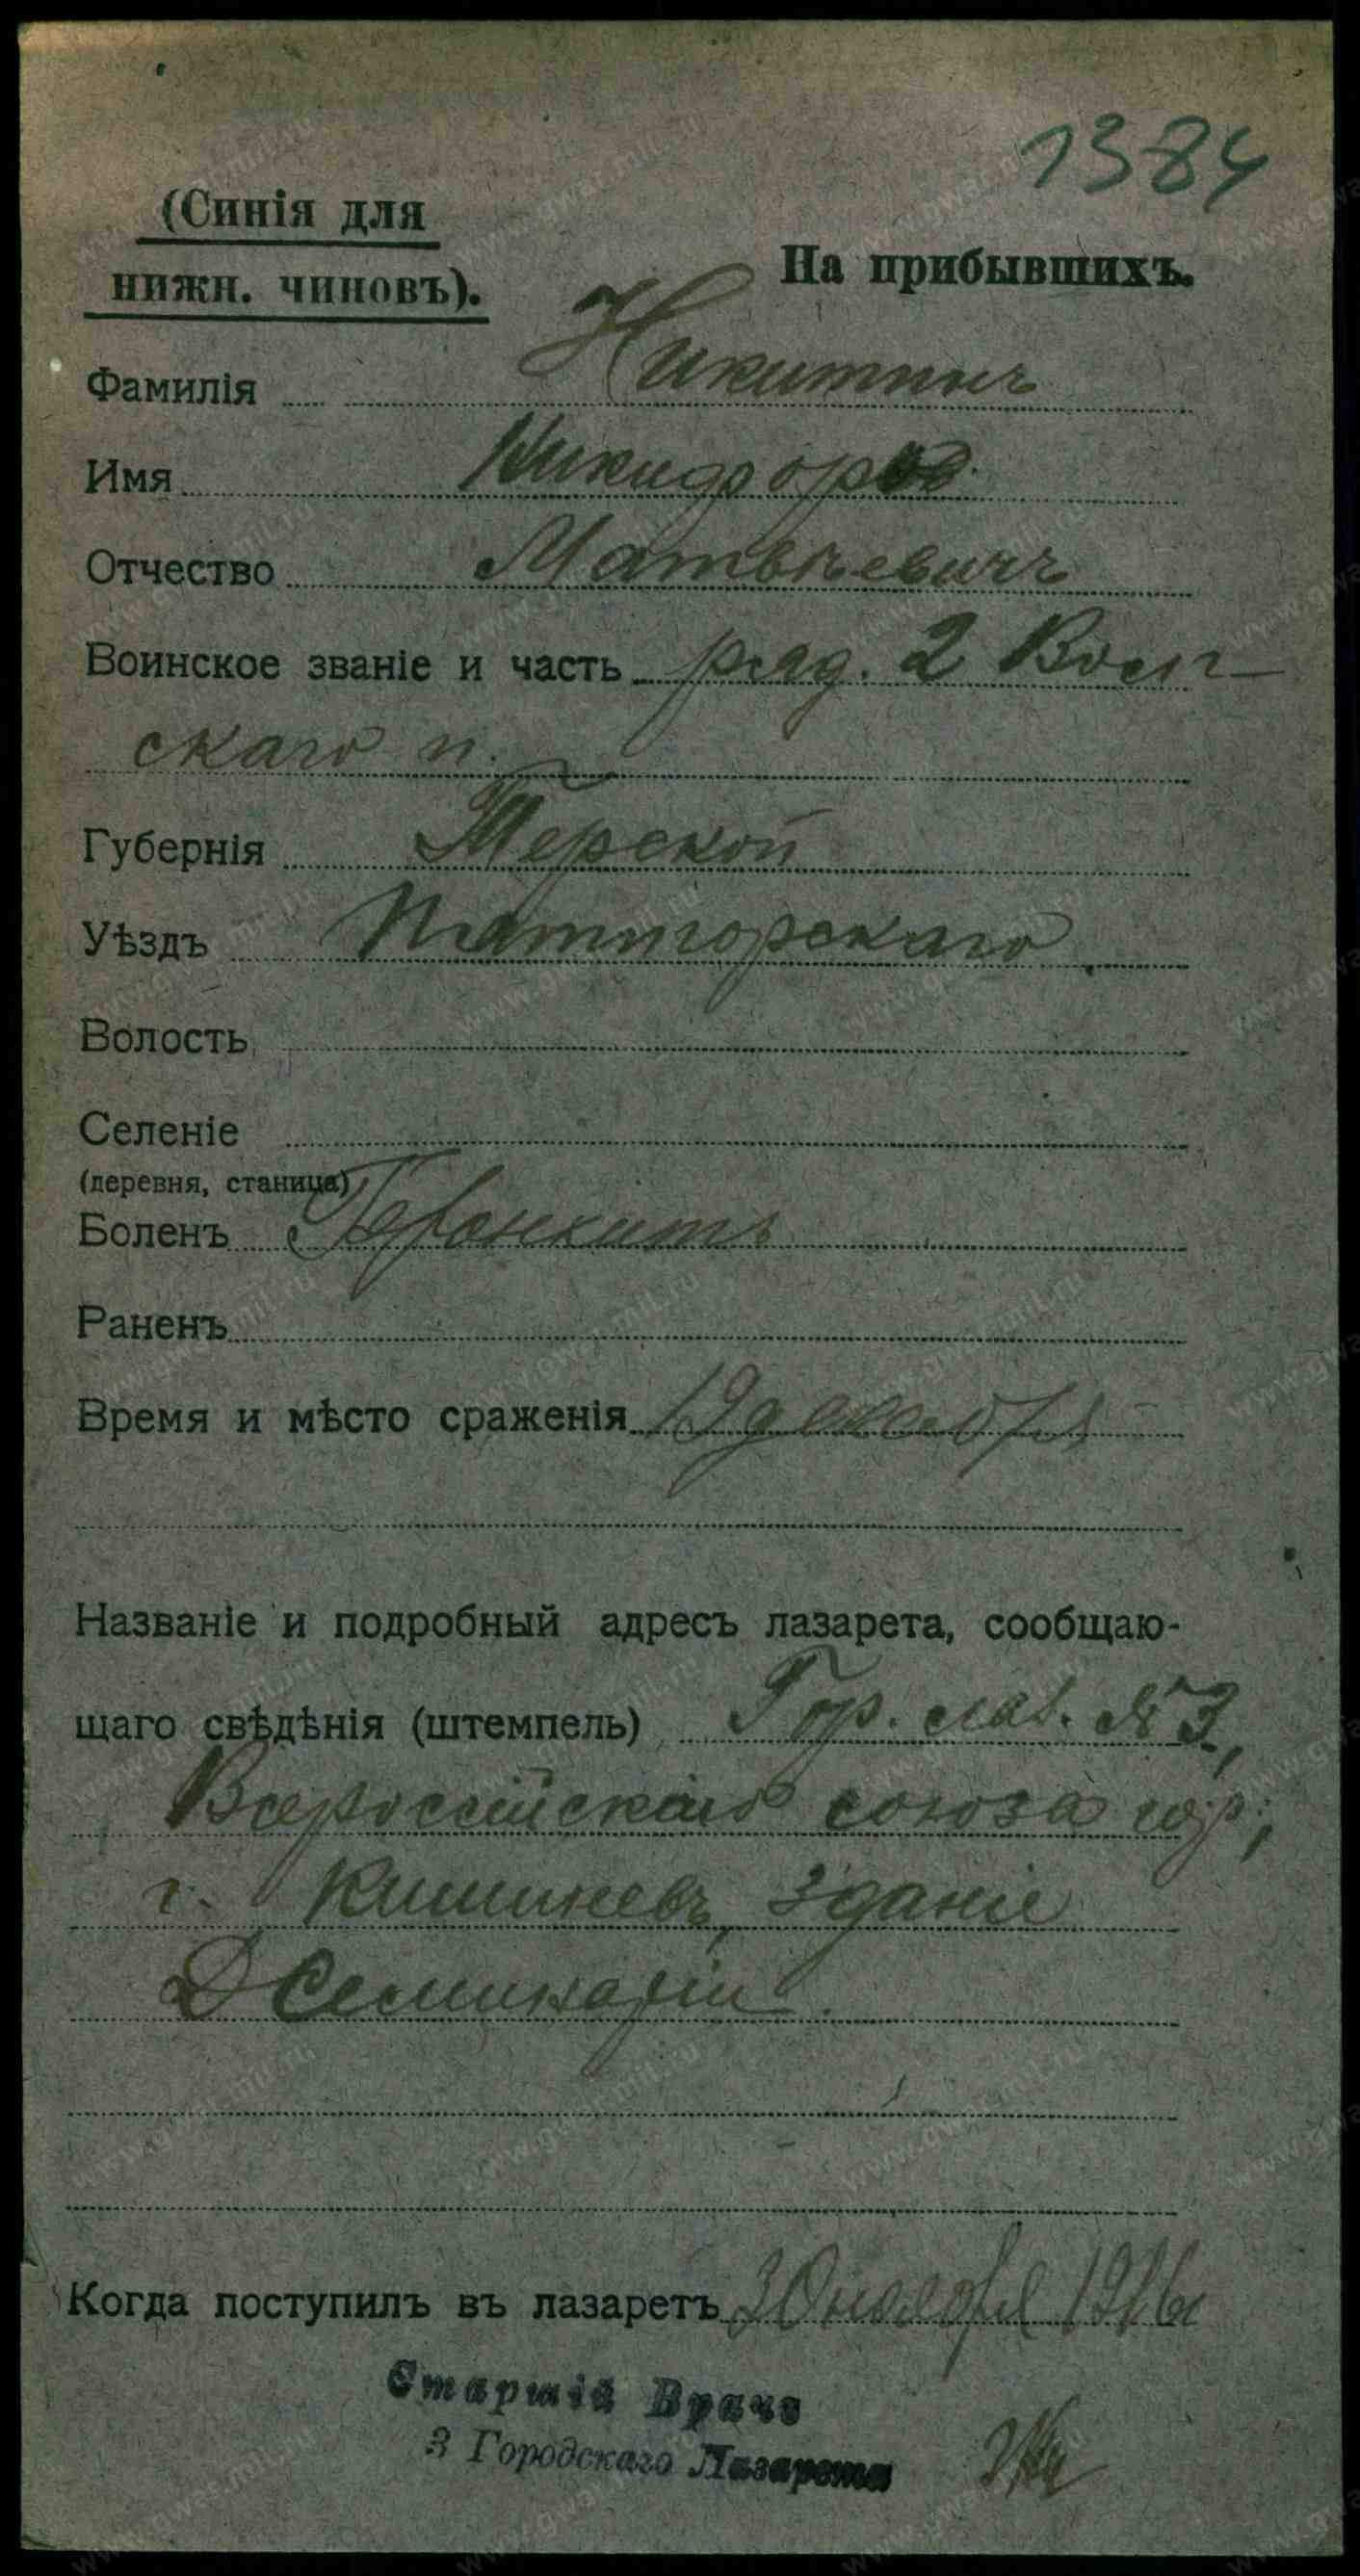 1384
(Синія для
нижн. чиновъ).
На прибывшихъ.
Фамилія Никитинъ
Имя Никифоръ
Отчество Матвѣевичъ
Воинское званіе и часть ряд. 2
скаго п.
Губернія Терской
Уѣздъ Пятигорскаго
Волость
Селеніе
(деревня, станица)
Боленъ Бронхитъ
Раненъ
Время и мѣсто сраженія
Названіе и подробный адресъ лазарета, сообщаю-
щаго свѣдѣнія (штемпель) Гор. лаз. №3,
Всероссійскаго союза гор.;
г. Кишиневъ, зданіе
Д Семинаріи.
Когда поступилъ въ лазаретъ 30 ноября 1916г
Старшій Врачъ
3 Городскаго Лазарета